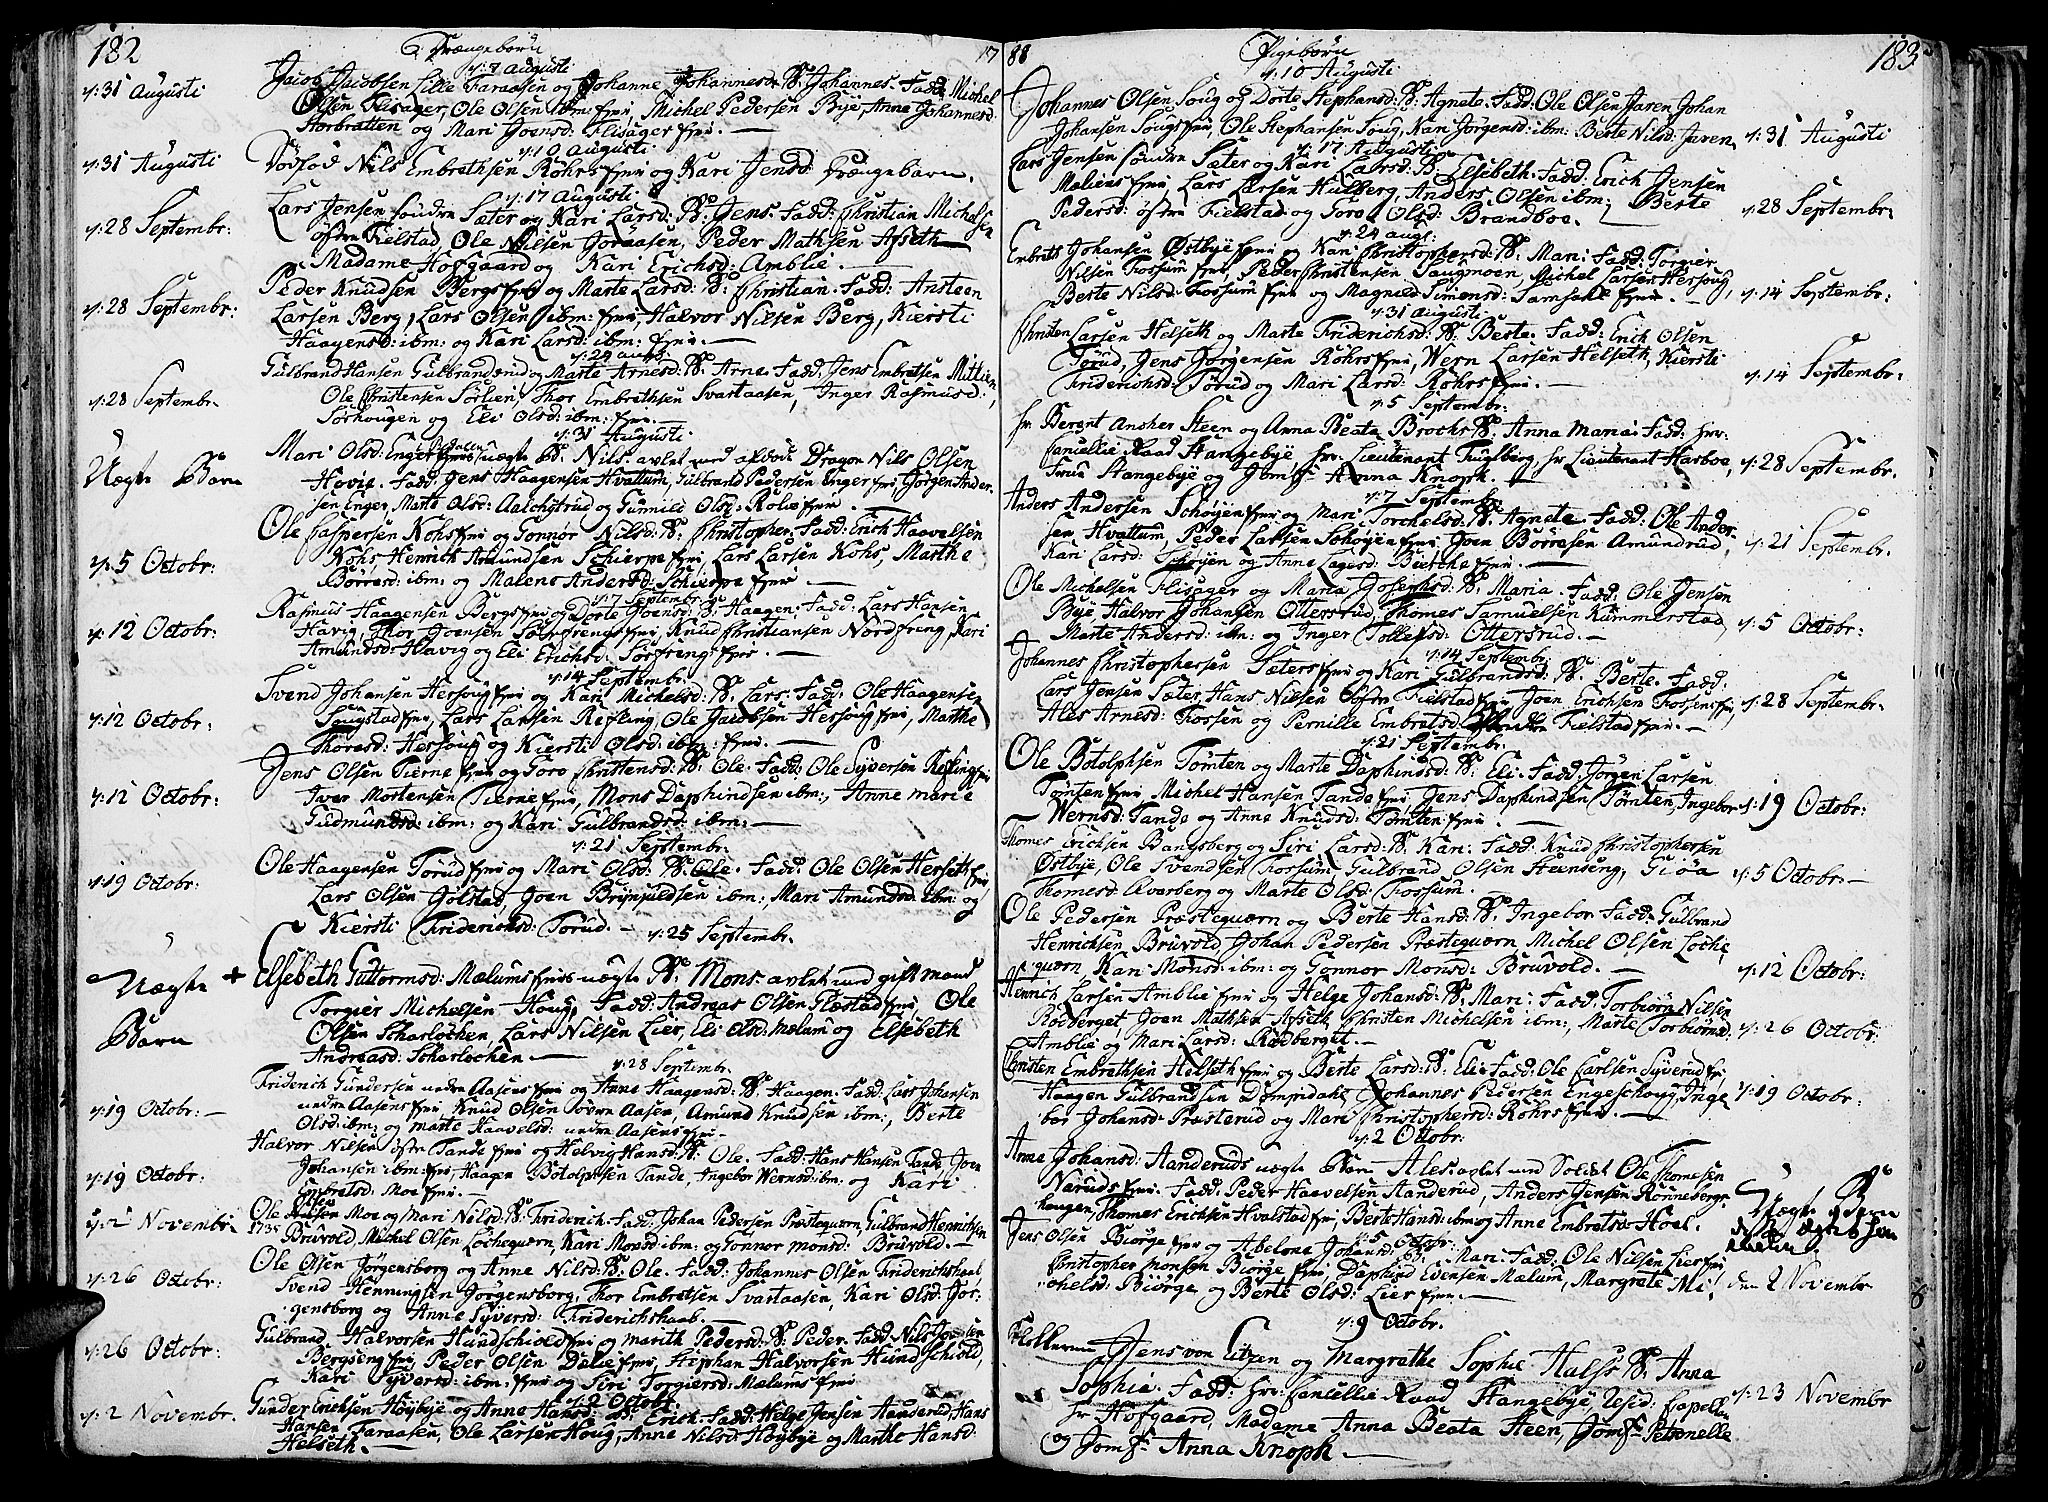 182
Drængebørn
17
d: 7 Augusti
d: 31 Augusti
Jacob Jacobsen Lille Faraasen og Johanne Johannesd: B: Johannes. Fadd: Michel
Olsen Flisager, Ole Olsen ibm: Michel Pedersen Bye, Anne Johannesd:
Storbratten og Mari Joensd: Flisager
d: 10 Augusti
d: 31 Augusti
Dödföd Nils Embrethsen Röhrs og Kari Jensd: Drængebarn.
d: 17 Augusti
d: 28 Septembr:
Lars Jensen söndre Sæter og Kari Larsd: B: Jens. Fadd: Christian Michelsen
östre Fielstad, Ole Nilsen Joraasen, Peder Mathsen Afseth
Madame Hofgaard og Kari Erichsd: Amblie.
d: 28 Septembr:
Peder Knudsen Bergs og Marte Larsd: B: Christian. Fadd: Ansteen
Larsen Berg, Lars Olsen ibm: Halvor Nilsen Berg, Kiersti
Haagensd: ibm: og Kari Larsd: ibm:
d: 24 aug:
d: 28 Septembr.
Gulbrand Hansen Gulbranderud og Marte Arnesd: B: Arne. Fadd: Jens Embretsen
Ole Christensen Sörlien, Thor Embrethsen Svartaasen, Inger Rasmusd:
Sörhougen og Eli Olsd: ibm:
d: 31 Augusti
Uægte Barn
Mari Olsd: Enger uægte B: Nils avlet med afdöde Dragon Nils Olsen
Hovie. Fadd: Jens Haagensen Hvattum, Gulbrand Pedersen Enger Jörgen Ander-
sen Enger, Marte Olsd: og Gunnild Olsd: Rolie
d: 5 Octobr:
Ole Caspersen Kohs og Gonnor Nilsd: B: Christopher. Fadd: Erich Haavelsen
Kohs, Henrich Amundsen Schierpe Lars Larsen Kohs, Marthe
Börresd: ibm: og Malene Andersd: Schierpe
d: 7 Septembr:
d: 12 Octobr:
Rasmus Haagensen Bergs og Dorte Joensd: B: Haagen. Fadd: Lars Hansen
Havig, Thor Joensen Sörfrengs Knud Christiansen Nordfreng, Kari
Amundsd: Havig og Eli Erichsd: Sörfrengs
d: 14 Septembr.
d: 12 Octobr:
Svend Johansen Hersoug og Kari Michelsd: B: Lars. Fadd: Ole Haagensen
Lars Larsen Refling, Ole Jacobsen Hersoug Marthe
Thoresd: Hersoug og Kiersti Olsd: ibm:
d: 12 Octobr:
Jens Olsen Tierne og Goro Christensd: B: Ole. Fadd: Ole Syversen Refling
Iver Mortensen Tierne Mons Daphindsen ibm: Anne Marie
Gudmundsd: ibm: og Kari Gulbrandsd: ibm:
d: 21 Septembr.
d: 19 Octobr:
Ole Haagensen Törud og Mari Olsd: B: Ole. Fadd: Ole Olsen Herset
Lars Olsen Golstad, Joen Brynjuldsen ibm: Mari Amundsd: ibm: og
Kiersti Friderichsd: Törud.
d: 25 Septembr.
Uægte Barn
+ Elsebeth Guttormsd: Mælums uægte B: Mons. avlet med gift mand
Torgier Michelsen Houg, Fadd: Andreas Olsen Glæstad Ole
Olsen Scharlöchen, Lars Nilsen Lier, Eli Olsd: Mælum og Elsebeth
Andreasd: Scharlöchen
d: 28 Septembr.
d: 19 Octobr:
Friderich Gundersen nedre Aasens og Anne Haagensd: B: Haagen. Fadd: Lars Johansen
nedre Aasens Knud Olsen Aasen, Amund Knudsen ibm: Berte
Olsd: ibm: og Marte Haavelsd: nedre Aasens
d: 19 Octobr:
Halvor Nilsen östre Tande og Helvig Hansd: B: Ole. Fadd: Hans Hansen Tande Joen
Johansen ibm: Haagen Botolphsen Tande, Ingebor Wernsd: ibm: og Kari
Embretsd: Moe
d: 2 Novembr.
Ole Moe og Mari Nilsd: B: Friderich. Fadd: Johan Pedersen Præstequærn, Gulbrand Henrichsen
Bruvold, Michel Olsen Lochequærn, Kari Monsd: ibm: og Gonnor Monsd: Bruvold.
d: 26 Octobr:
Ole Olsen Jörgensborg og Anne Nilsd: B: Ole. Fadd: Johannes Olsen Friderichshaab,
Svend Henningsen Jörgensborg, Thor Embretsen Svartaasen, Kari Olsd: Jör-
gensborg og Anne Syversd: Friderichshaab.
d: 26 Octobr:
Gulbrand Halvorsen Hundschiold og Marith Pedersd: B: Peder. Fadd: Nils Joensen
Bergseng Peder Olsen Dælie Stephan Halvorsen Hundschiold,
Kari Syversd: ibm: og Siri Torgiersd: Mælums
d: 2 Octobr.
d: 2 Novembr.
Gunder Erichsen Höybye og Anne Hansd: B: Erich. Fadd: Helge Jensen Aanderud, Hans
Hansen Faraasen, Ole Larsen Houg, Anne Nilsd: Höybye og Marthe Hansd:
Helseth.
88
Pigebørn
183
d: 10 Augusti
Johannes Olsen Soug og Dorte Stephansd: B: Agnete. Fadd: Ole Olsen Jaren Johan
Johansen Sougs Ole Stephansen Soug, Kari Jörgensd: ibm: Berte Nilsd: Jaren
d: 31 Augusti
d: 17 Augusti
Lars Jensen söndre Sæter og Kari Larsd: B: Elsebeth. Fadd: Erich Jensen
Mæliens Lars Larsen Hulberg, Anders Olsen ibm: Berte
Pedersd: östre Fielstad og Goro Olsd: Brandboe.
d: 28 Septembr:
d: 24 aug:
Embreth Johansen Østbye og Kari Christophersd: B: Mari. Fadd: Torgier
Nilsen Fossum Peder Christensen Saugmoen, Michel Larsen Hersoug,
Berte Nilsd: Fossum og Magnild Simensd: Samsahl
d: 14 Septembr:
d: 31 Augusti
Christen Larsen Helseth og Marte Friderichsd: B: Berte. Fadd: Erich Olsen
Törud, Jens Jörgensen Röhrs Wern Larsen Helseth, Kiersti
Friderichsd: Törud og Mari Larsd: Röhrs
d: 14 Septembr:
d: 5 Septembr:
Hr. Berent Ancher Steen og Anna Beata Brochs B: Anna Maria: Fadd: Hrr.
Cancellie Raad Stangebye Hr. Lieutenant Fuglberg, Hr. Lieutenant Harboe,
Frue Stangebye og Jomf: Anna Knoph.
d: 28 Septembr.
d: 7 Septembr:
Anders Andersen Schöyen og Mari Torchelsd: B: Agnete. Fadd: Ole Ander-
sen Hvattum, Peder Larsen Schöyen Joen Börresen Amundrud,
Kari Larsd: Schöyen og Anne Lagesd: Bierche
d: 21 Septembr.
Ole Michelsen Flisager og Maria Josephsd: B: Maria. Fadd: Ole Jensen
Bye Halvor Johansen Ottersrud, Thomes Samuelsen Kummerstad,
Marte Andersd: ibm: og Inger Tollefsd: Ottersrud.
d: 5 Octobr:
d: 14 Septembr.
Johannes Christophersen Sæters og Kari Gulbrandsd: B: Berte. Fadd:
Lars Jensen Sæter, Hans Nilsen östre Fielstad Joen Erichsen Fossen
Ales Arnesd: Fossen og Pernille Embretsd: Fielstad
d: 28 Septembr.
d: 21 Septembr.
Ole Botolphsen Tömten og Marte Daphindsd: B: Eli. Fadd: Jörgen Larsen
Tömten Michel Hansen Tande Jens Daphindsen Tömten, Ingebor
Wernsd: Tande og Anne Knudsd: Tömten
d: 19 Octobr:
Thomes Erichsen Bangsberg og Siri Larsd: B: Kari. Fadd: Knud Christophersen
Østbye, Ole Svendsen Fossum, Gulbrand Olsen Steenseng, Giöa
Thomesd: Averberg og Marte Olsd: Fossum.
d: 5 Octobr:
Ole Pedersen Præstequærn og Berte Hansd: B: Ingebor. Fadd: Gulbrand
Henrichsen Bruvold, Johan Pedersen Præstequærn, Michel Olsen Loche-
quærn, Kari Monsd: ibm: og Gonnor Monsd: Bruvold.
d: 12 Octobr:
Henrich Larsen Amblie og Helge Johansd: B: Mari. Fadd: Torbiörn Nilsen
Rödberget, Joen Mathsen Afseth, Christen Michelsen ibm: Marte Torbiörnsd:
Amblie og Mari Larsd: Rödberget.
d: 26 Octobr:
Christen Embrethsen Helseth og Berte Larsd: B: Eli. Fadd: Ole Carlsen Syverud
Haagen Gulbrandsen Dompidahl Johannes Pedersen Engeschoug, Inge
bor Johansd: Præsterud og Mari Christophersd: Röhrs
d: 19 Octobr:
d: 2 Octobr:
Anne Johansd: Aanderuds uægte Barn Ales avlet med Soldat Ole Thomesen
Naruds Fadd: Peder Haavelsen Aanderud, Anders Jensen Rönneberg-
haugen, Thomes Erichsen Hvalstad Berte Hansd: ibm: og Anne Embretsd: Hoel.
Uægte Barn
d: 5 Octobr:
Jens Olsen Biörge og Abelone Johansd: B: Mari. Fadd: Ole Nilsen Lier
Christopher Monsen Biörge Daphind Evensen Mælum, Margrete Mi-
chelsd: Biörge og Berte Olsd: Lier
den 2 Novembr
d: 9 Octobr.
Jens von Eitzen og Margrethe Sophie Halss B: Anna
Sophia. Fadd: Hrr: Cancellie Raad Stangebye, Resid: Capellan
Hr Hofgaard, Madame Anna Beata Steen, Jomf: Petronelle
og Jomf: Anna Knoph.
d: 23 Novembr